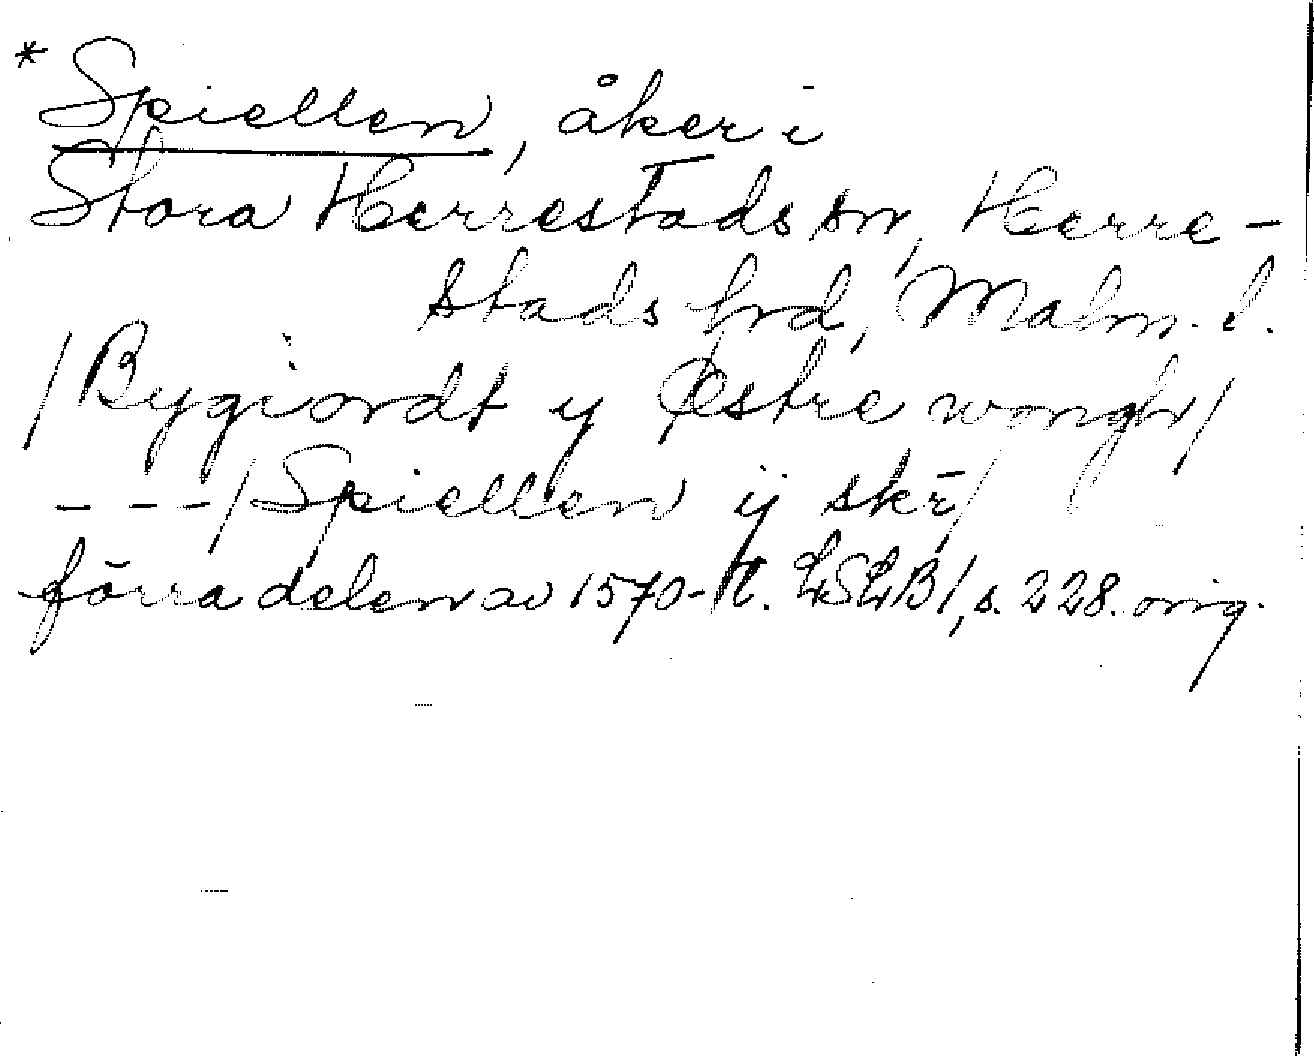 * Spiellen, åker i
Stora Herrestads sn, Herre-
stads hrd, Malm. l.
/Bygiordt y Østre wongh/
---/Spiellen ij skr̄/
förra delen av 1570-t. LSLB1, s. 228. orig.